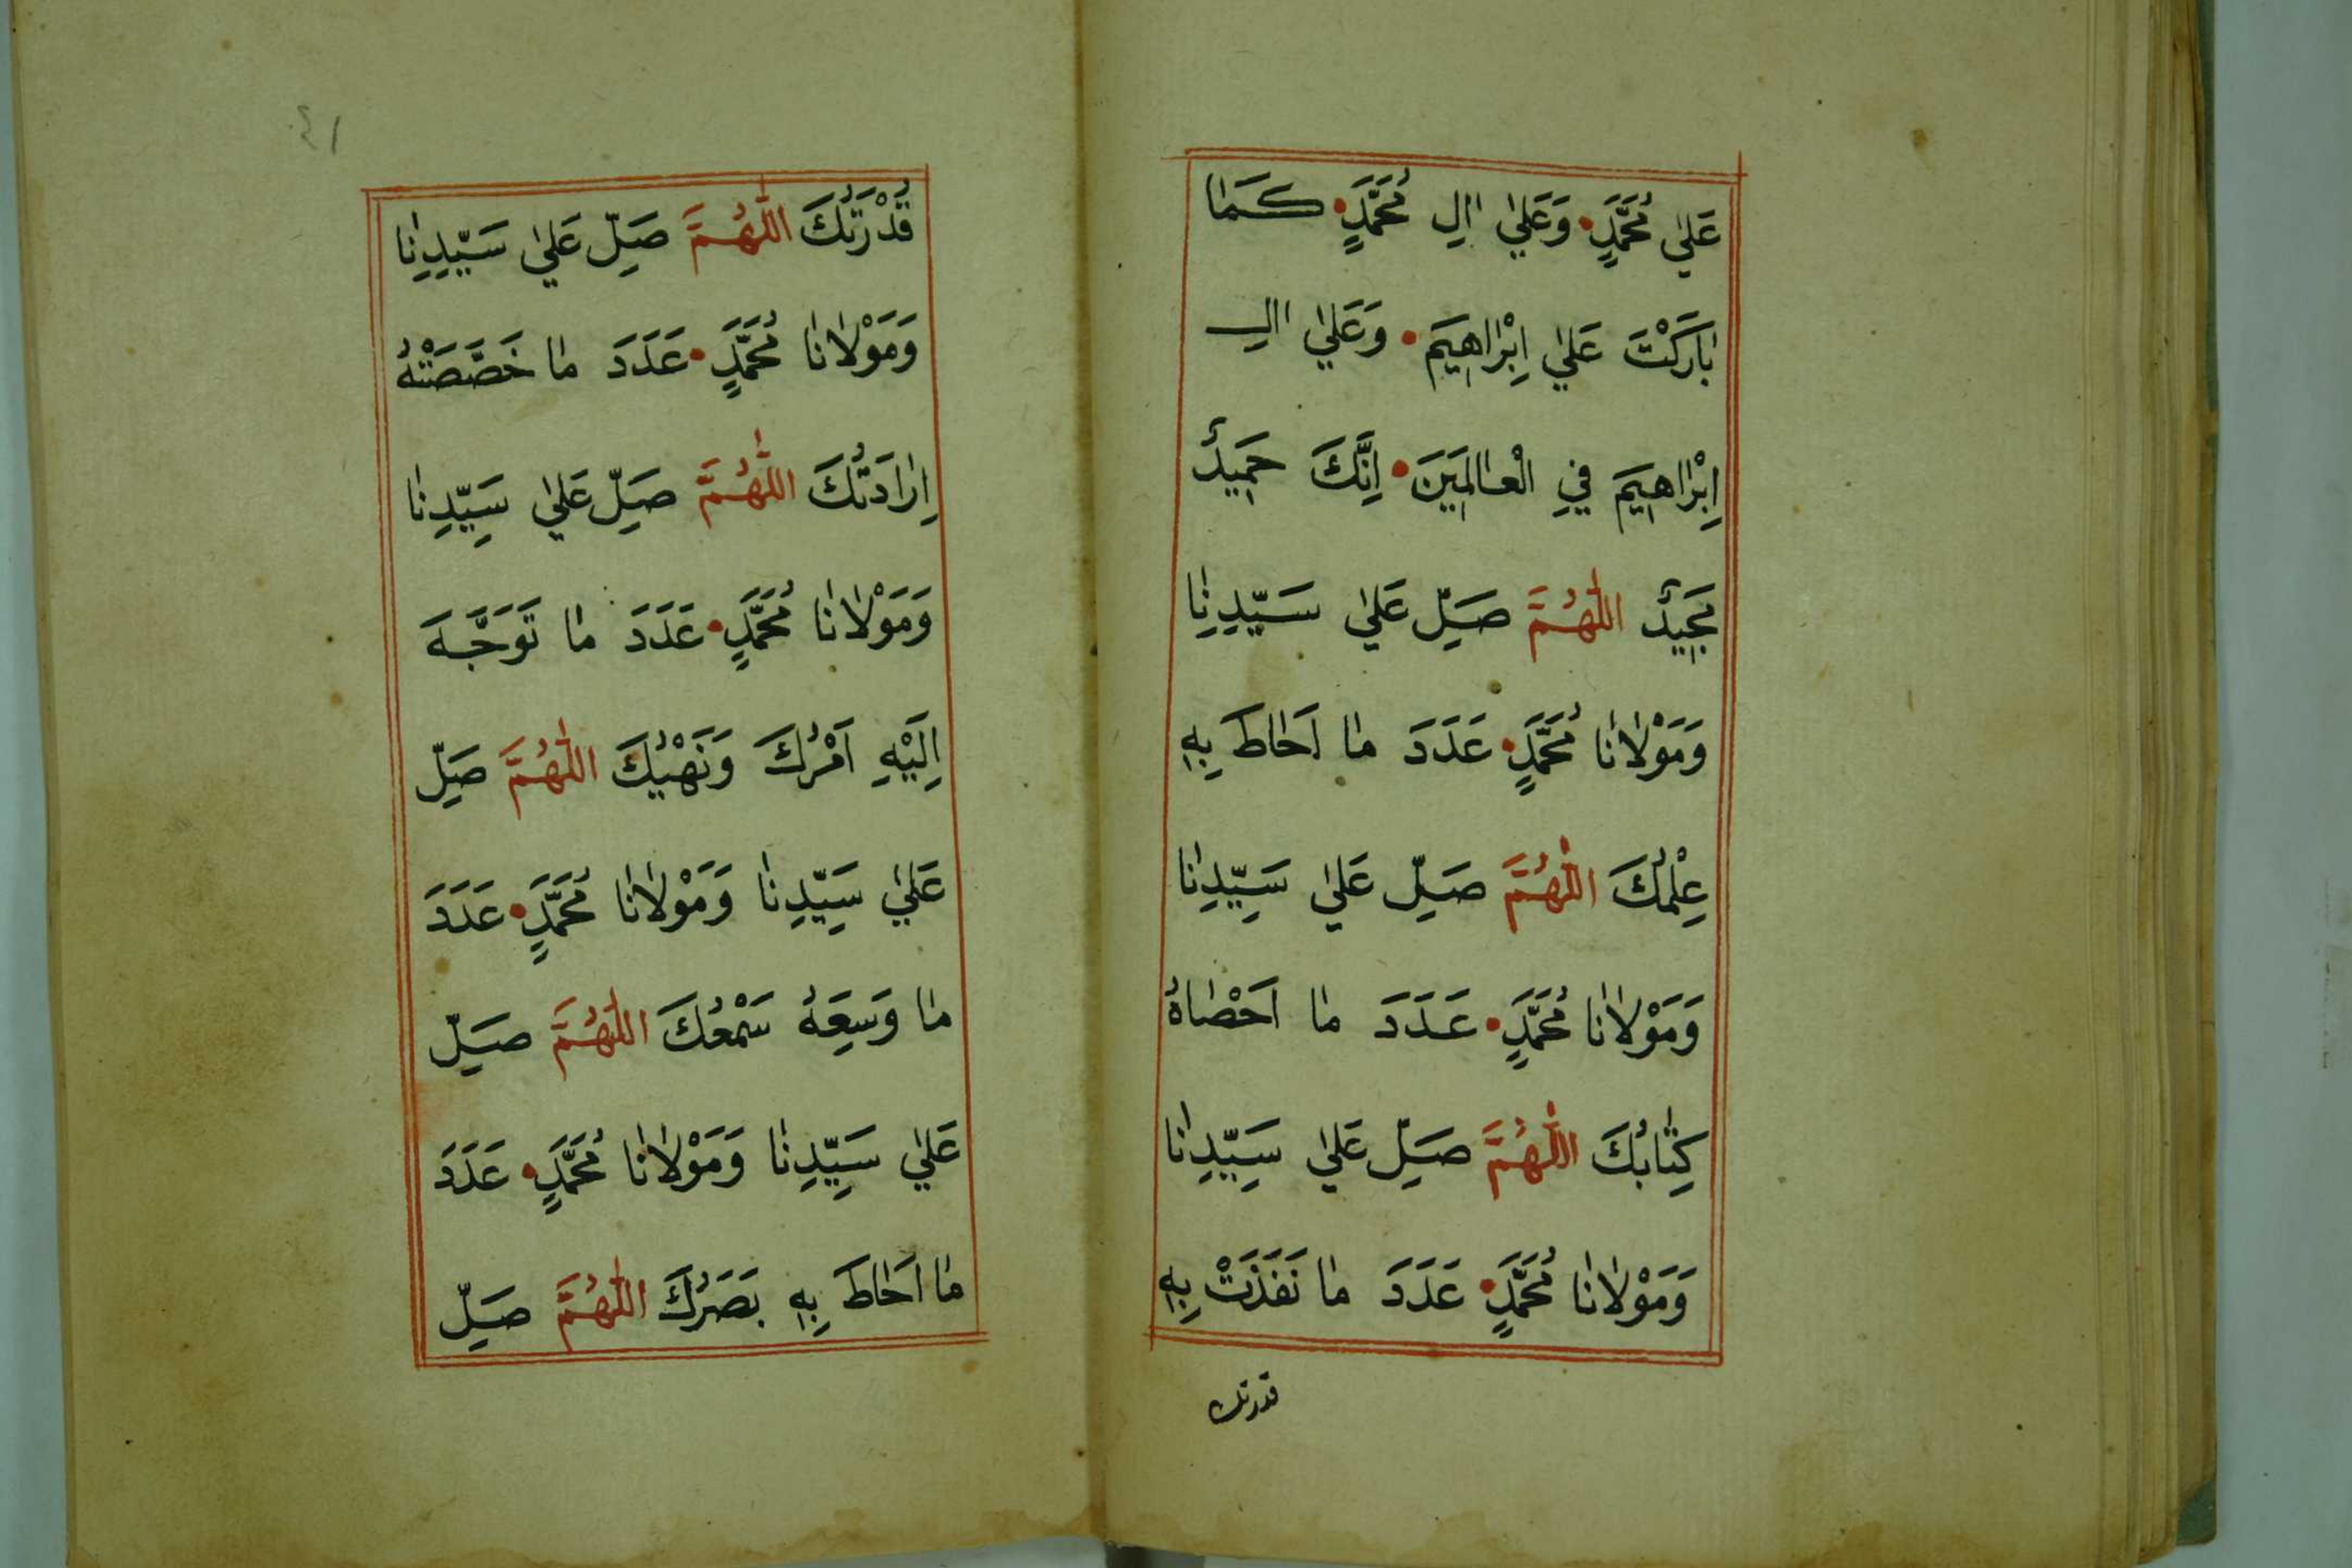 عَلٰي مُحَمَّدٍ • وَعَلٰي اٰلِ مُحَمَّدٍ • كَمٰا
بٰارَكْتَ عَلٰي اِبْرٰاهٖيمَ • وَعَلٰي اٰلِ
اِبْرٰاهٖيمَ فِي الْعٰالَمٖينَ • اِنَّكَ حَمٖيدٌ
مَجٖيدٌ اللّٰهُمَّ صَلِّ عَلٰي سَيِّدِنٰا
وَمَوْلٰانٰا مُحَمَّدٍ • عَدَدَ مٰا اَحٰاطَ بِهٖ
عِلْمُكَ اللّٰهُمَّ صَلِّ عَلٰي سَيِّدِنٰا
وَمَوْلٰانٰا مُحَمَّدٍ • عَدَدَ مٰا اَحْصٰاهُ
كِتٰابُكَ اللّٰهُمَّ صَلِّ عَلٰي سَيِّدِنٰا
وَمَوْلٰانٰا مُحَمَّدٍ • عَدَدَ مٰا نَفَذَتْ بِهٖ
قدرتك
٤١
قُدْرَتُكَ اللّٰهُمَّ صَلِّ عَلٰي سَيِّدِنٰا
وَمَوْلٰانٰا مُحَمَّدٍ • عَدَدَ مٰا خَصَّصَتْهُ
اِرٰادَتُكَ اللّٰهُمَّ صَلِّ عَلٰي سَيِّدِنٰا
وَمَوْلٰانٰا مُحَمَّدٍ • عَدَدَ مٰا تَوَجَّهَ
اِلَيْهِ اَمْرُكَ وَنَهْيُكَ اللّٰهُمَّ صَلِّ
عَلٰي سَيِّدِنٰا وَمَوْلٰانٰا مُحَمَّدٍ • عَدَدَ
مٰا وَسِعَهُ سَمْعُكَ اللّٰهُمَّ صَلِّ
عَلٰي سَيِّدِنٰا وَمَوْلٰانٰا مُحَمَّدٍ • عَدَدَ
مٰا اَحٰاطَ بِهٖ بَصَرُكَ اللّٰهُمَّ صَلِّ